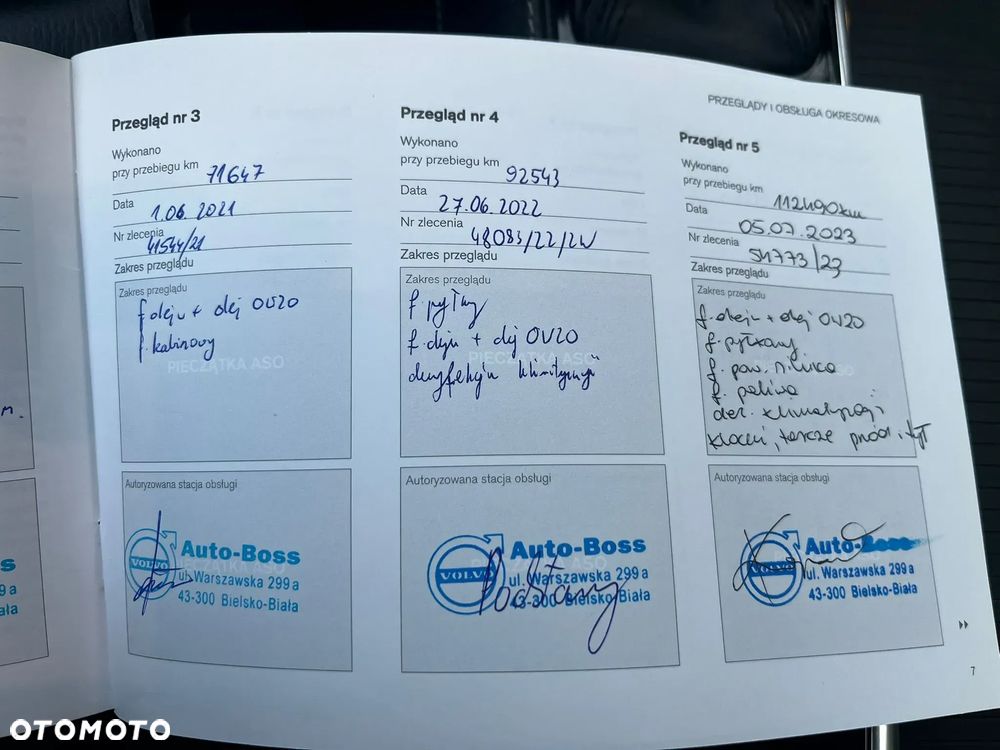 PRZEGLĄDY I OBSŁUGA OKRESOWA
Przegląd nr 3
Wykonano
przy przebiegu km 71647
Data 1.06.2021
Nr zlecenia 41544/21
Zakres przeglądu
Zakres przeglądu
f. oleju + olej 0W20
f. kabinowy
PIECZĄTKA ASO
Autoryzowana stacja obsługi
VOLVO
Auto-Boss
ul. Warszawska 299 a
43-300 Bielsko-Biała
Przegląd nr 4
Wykonano
przy przebiegu km 92543
Data 27.06.2022
Nr zlecenia 48083/22/ZW
Zakres przeglądu
Zakres przeglądu
f. pyłkowy
f. oleju + olej 0W20
PIECZĄTKA ASO
dezynfekcja klimatyzacji
Autoryzowana stacja obsługi
VOLVO
Auto-Boss
ul. Warszawska 299 a
43-300 Bielsko-Biała
Przegląd nr 5
Wykonano
przy przebiegu km 112490km
Data 05.07.2023
Nr zlecenia 54773/23
Zakres przeglądu
Zakres przeglądu
f. oleju + olej 0W20
f. pyłkowy
f. pow. silnika
f. paliwa
dez. klimatyzacji
klocki, tarcze przód, tył
Autoryzowana stacja obsługi
VOLVO
Auto-Boss
ul. Warszawska 299 a
43-300 Bielsko-Biała
7
OTOMOTO